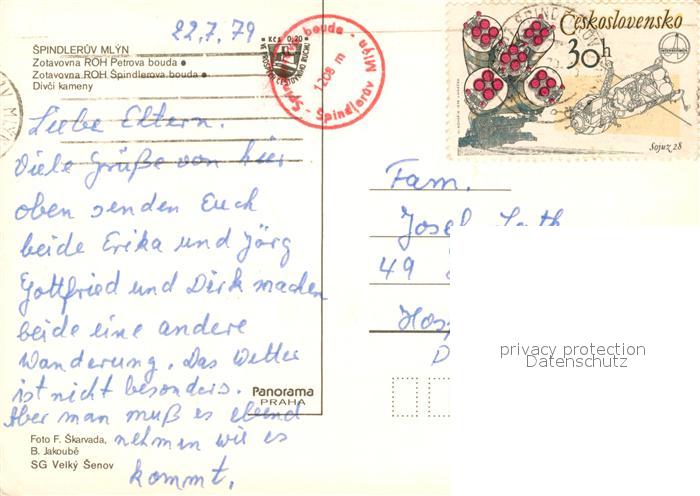 22.7.79
ŠPINDLERŮV MLÝN
Zotavovna ROH Petrova bouda ●
Zotavovna ROH Špindlerova bouda ●
Dívčí kameny
Kčs 0,20
bouda - Špindlerův Mlýn
1208 m
Československo
30h
Sojuz 28
Liebe Eltern.
Viele Grüße von hier
oben senden Euch
beide Erika und Jörg
Gottfried und Dirk machen
beide eine andere
Wanderung. Das Wetter
ist nicht besonders.
Aber man muß es ebend
nehmen wie es
kommt.
Fam.
Josef
49
privacy protection
Datenschutz
Panorama
PRAHA
Foto F. Škarvada,
B. Jakoubě
SG Velký Šenov